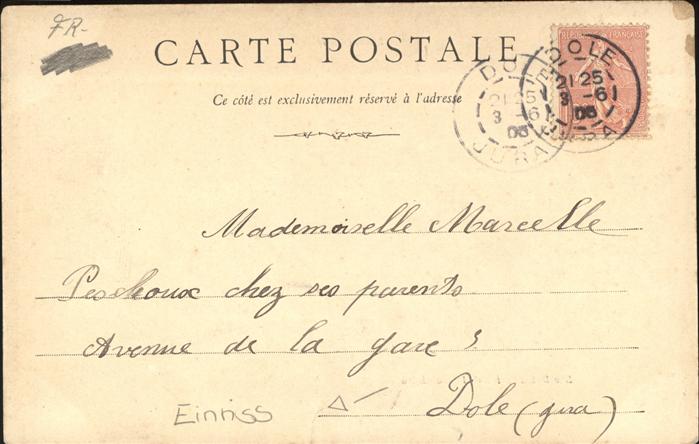 FR-
CARTE POSTALE
Ce côté est exclusivement réservé à l'adresse
RÉPUBLIQUE FRANÇAISE
DOLE
21 25
3 -6
05
JURA
DOLE
21 25
3 -6
05
JURA
Mademoiselle Marcelle
Pescheux chez ses parents
Avenue de la gare 5
Dole (jura)
Einriss